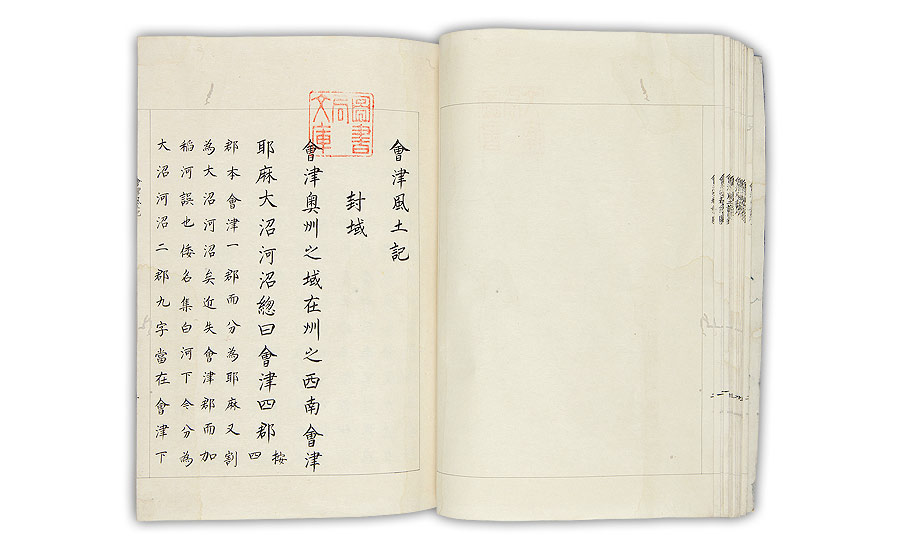 圖書
局
文庫
會津風土記
封域
會津奧州之域在州之西南會津
耶麻大沼河沼總曰會津四郡按四
郡本會津一郡而分為耶麻又割
為大沼河沼矣近失會津郡而加
稻河誤也倭名集白河下令分為
大沼河沼二郡九字當在會津下